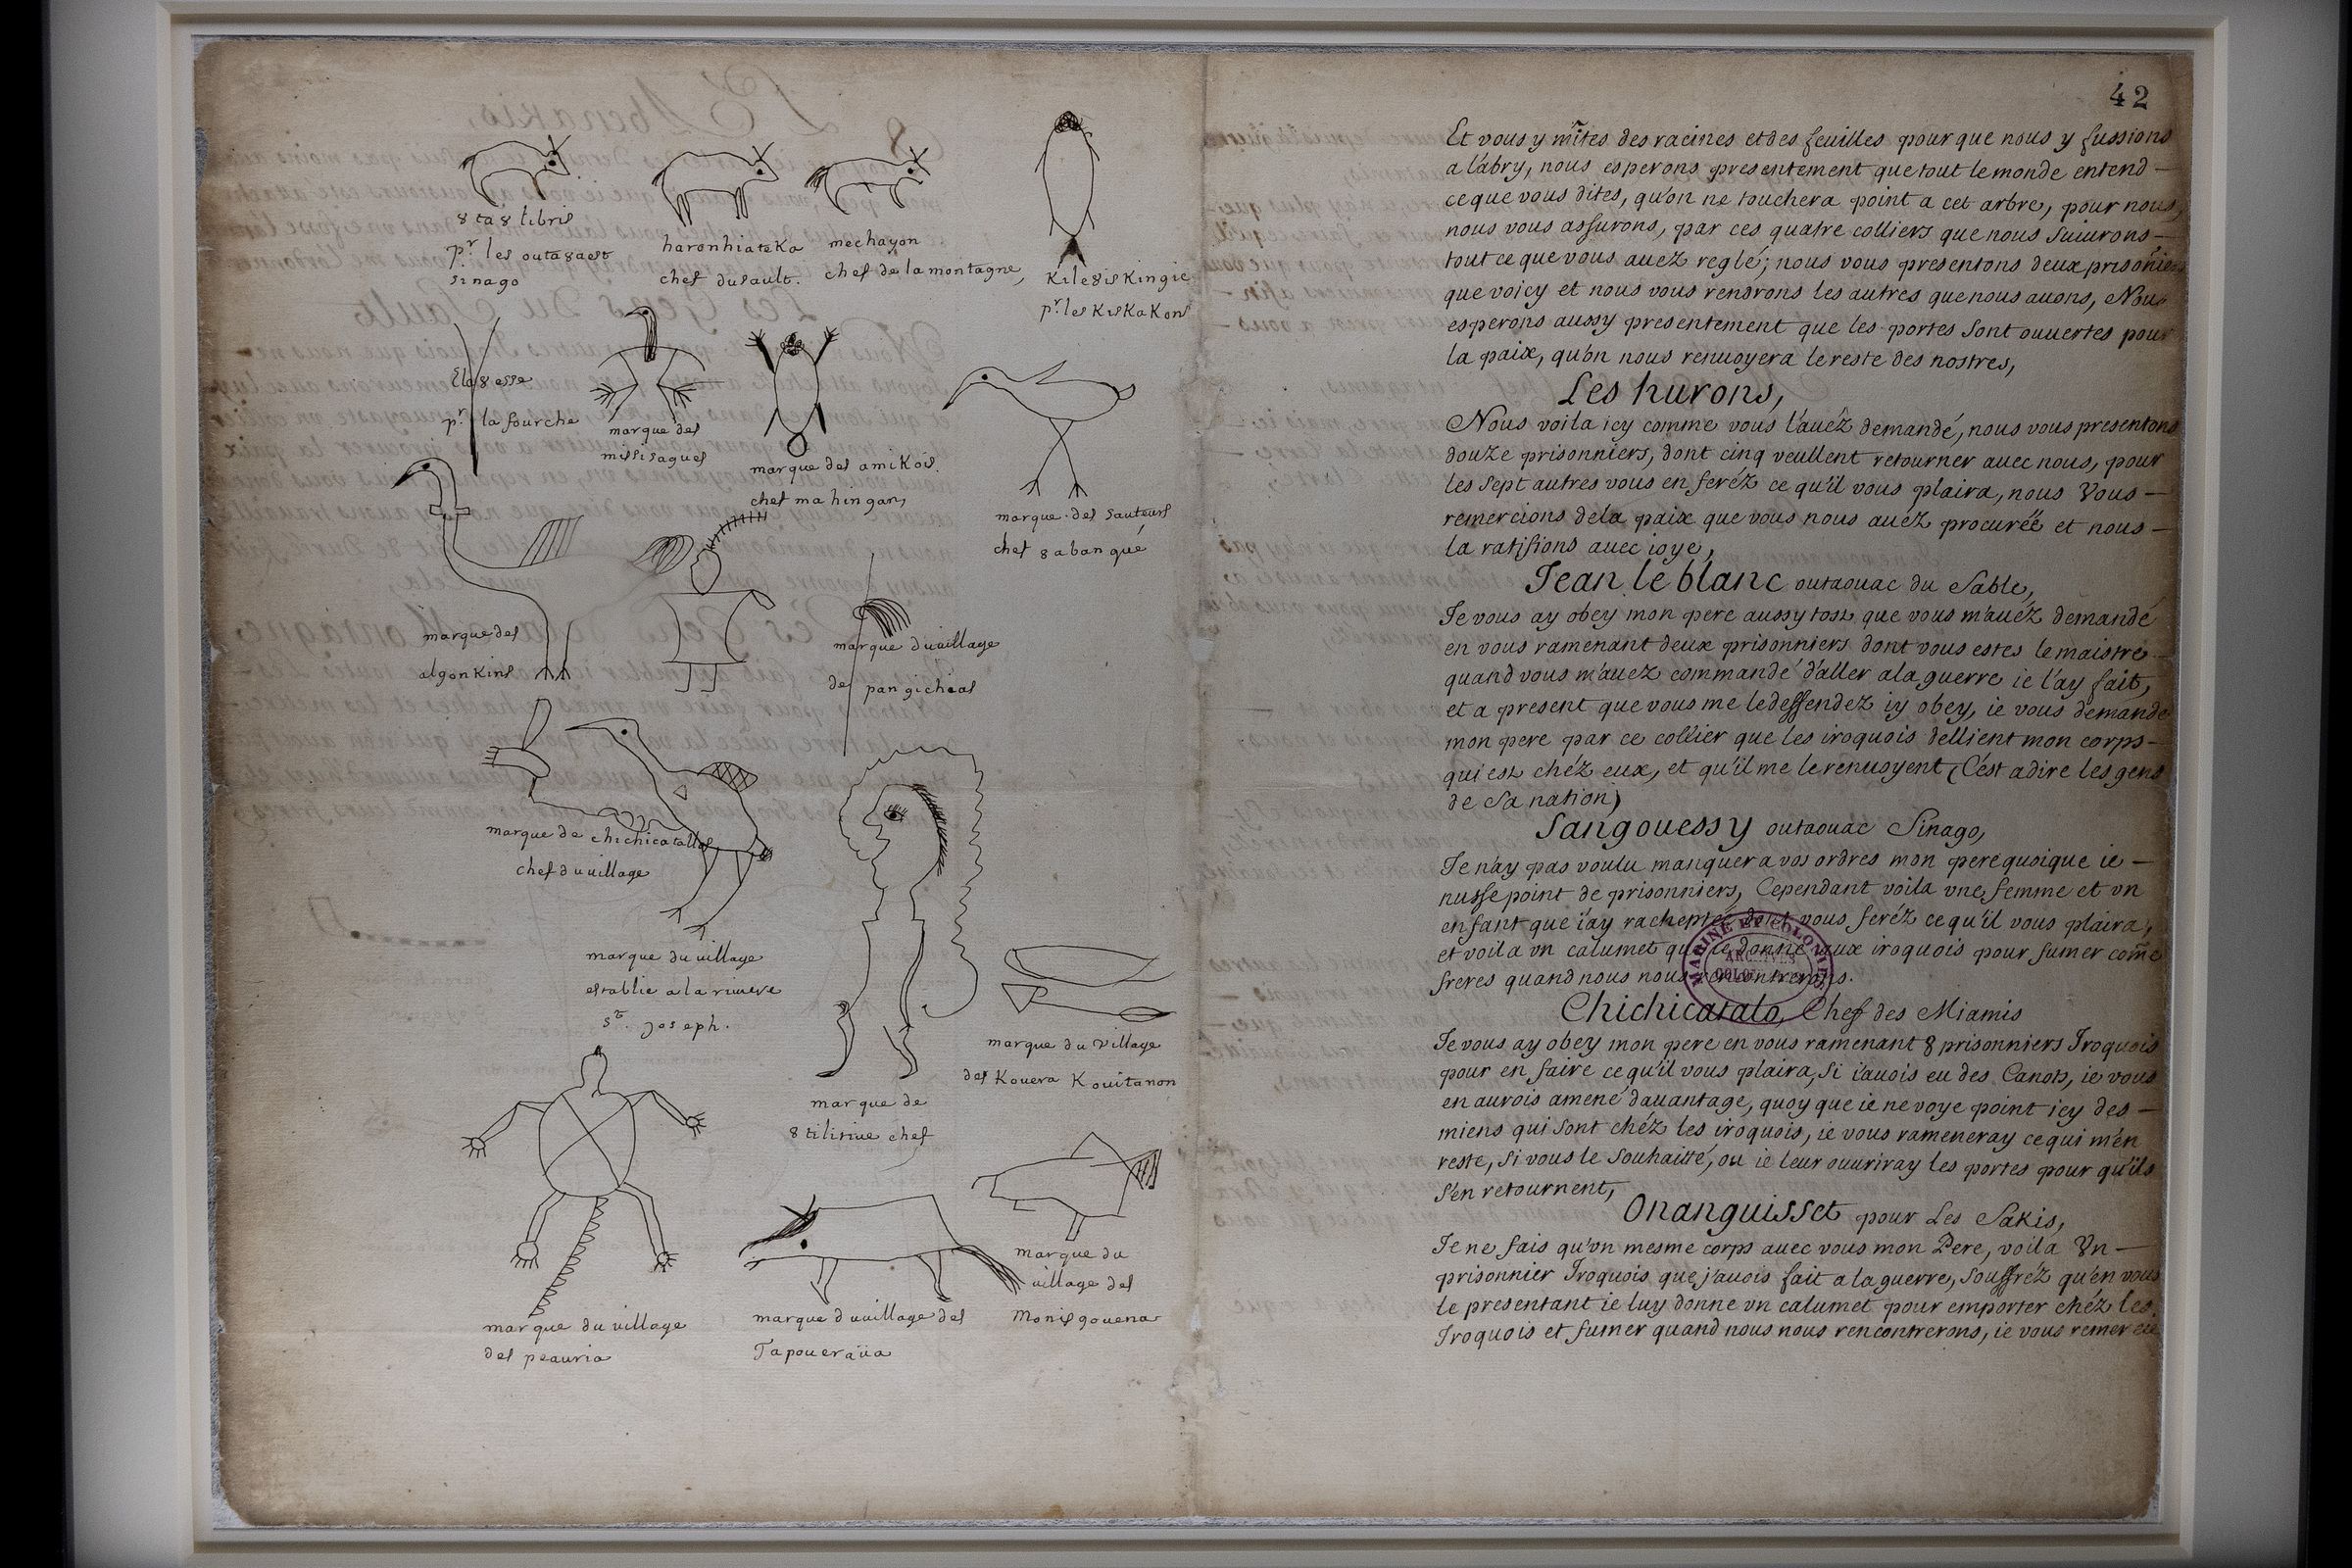 8ta8libris
pr. les outa8aest
sinago
haronhiateka
chef dusault.
mechayon
chef de la montagne,
Kile8isKingie
pr. les KisKaKons
Ela8esse
pr. la fourche
marque des
missisagues
marque des amiKois.
chef mahingan,
marque des sauteurs
chef 8abangué
marque des
algonkins
marque duvillage
des pangicheas
marque de chichicatallo
chef du village
marque du village
establie a la riuiere
St. Joseph.
marque du village
des Kouera Kouitanon
marque de
8tilirine chef
marque du village
des peauria
marque duvillage des
Tapoueraüa
marque du
village des
Monisgouena
42
Et vous y mîtes des racines et des feuilles pour que nous y fussions
a l'abry, nous esperons presentement que tout le monde entend —
ce que vous dites, qu'on ne touchera point a cet arbre, pour nous,
nous vous assurons, par ces quatre colliers que nous suiurons —
tout ce que vous auez reglé; nous vous presentons deux prisoniers
que voicy et nous vous rendrons les autres que nous auons, Nous
esperons aussy presentement que les portes sont ouuertes pour
la paix, qu'on nous renuoyera le reste des nostres,
Les hurons,
Nous voila icy comme vous l'auéz demandé, nous vous presentons
douze prisonniers, dont cinq veullent retourner auec nous, pour
les sept autres vous en feréz ce qu'il vous plaira, nous Vous —
remercions de la paix que vous nous auéz procurée et nous —
la ratifions auec ioye,
Jean le blanc outaouac du Sable,
Je vous ay obey mon pere aussy tost que vous m'auéz demandé
en vous ramenant deux prisonniers dont vous estes le maistre —
quand vous m'auez commandé d'aller a la guerre ie l'ay fait,
et a present que vous me le deffendez iy obey, ie vous demande
mon pere par ce collier que les iroquois dellient mon corps —
qui est chéz eux, et qu'il me le renuoyent (C'est a dire les gens
de sa nation)
Sangouessy outaouac Sinago,
Je n'ay pas voulu manquer a vos ordres mon pere quoique ie —
nusse point de prisonniers, Cependant voila vne femme et vn
enfant que i'ay rachepté dont vous feréz ce qu'il vous plaira,
et voila vn calumet que ie donne aux iroquois pour fumer come
freres quand nous nous rencontrerons.
MARINE ET COLONIES
ARCHIVES
Chichicatalo, Chef des Miamis
Je vous ay obey mon pere en vous ramenant 8 prisonniers Iroquois
pour en faire ce qu'il vous plaira, si i'auois eu des Canots, ie vous
en aurois amené d'auantage, quoy que ie ne voye point icy des —
miens qui sont chéz les iroquois, ie vous rameneray ce qui m'en
reste, si vous le souhaitté, ou ie leur ouuriray les portes pour qu'ils
s'en retournent,
Onanguisset pour Les Sakis,
Je ne fais qu'vn mesme corps auec vous mon Pere, voila Vn —
prisonnier Iroquois que j'auois fait a la guerre, souffréz qu'en vous
le presentant ie luy donne vn calumet pour emporter chéz les
Iroquois et fumer quand nous nous rencontrerons, ie vous remercie